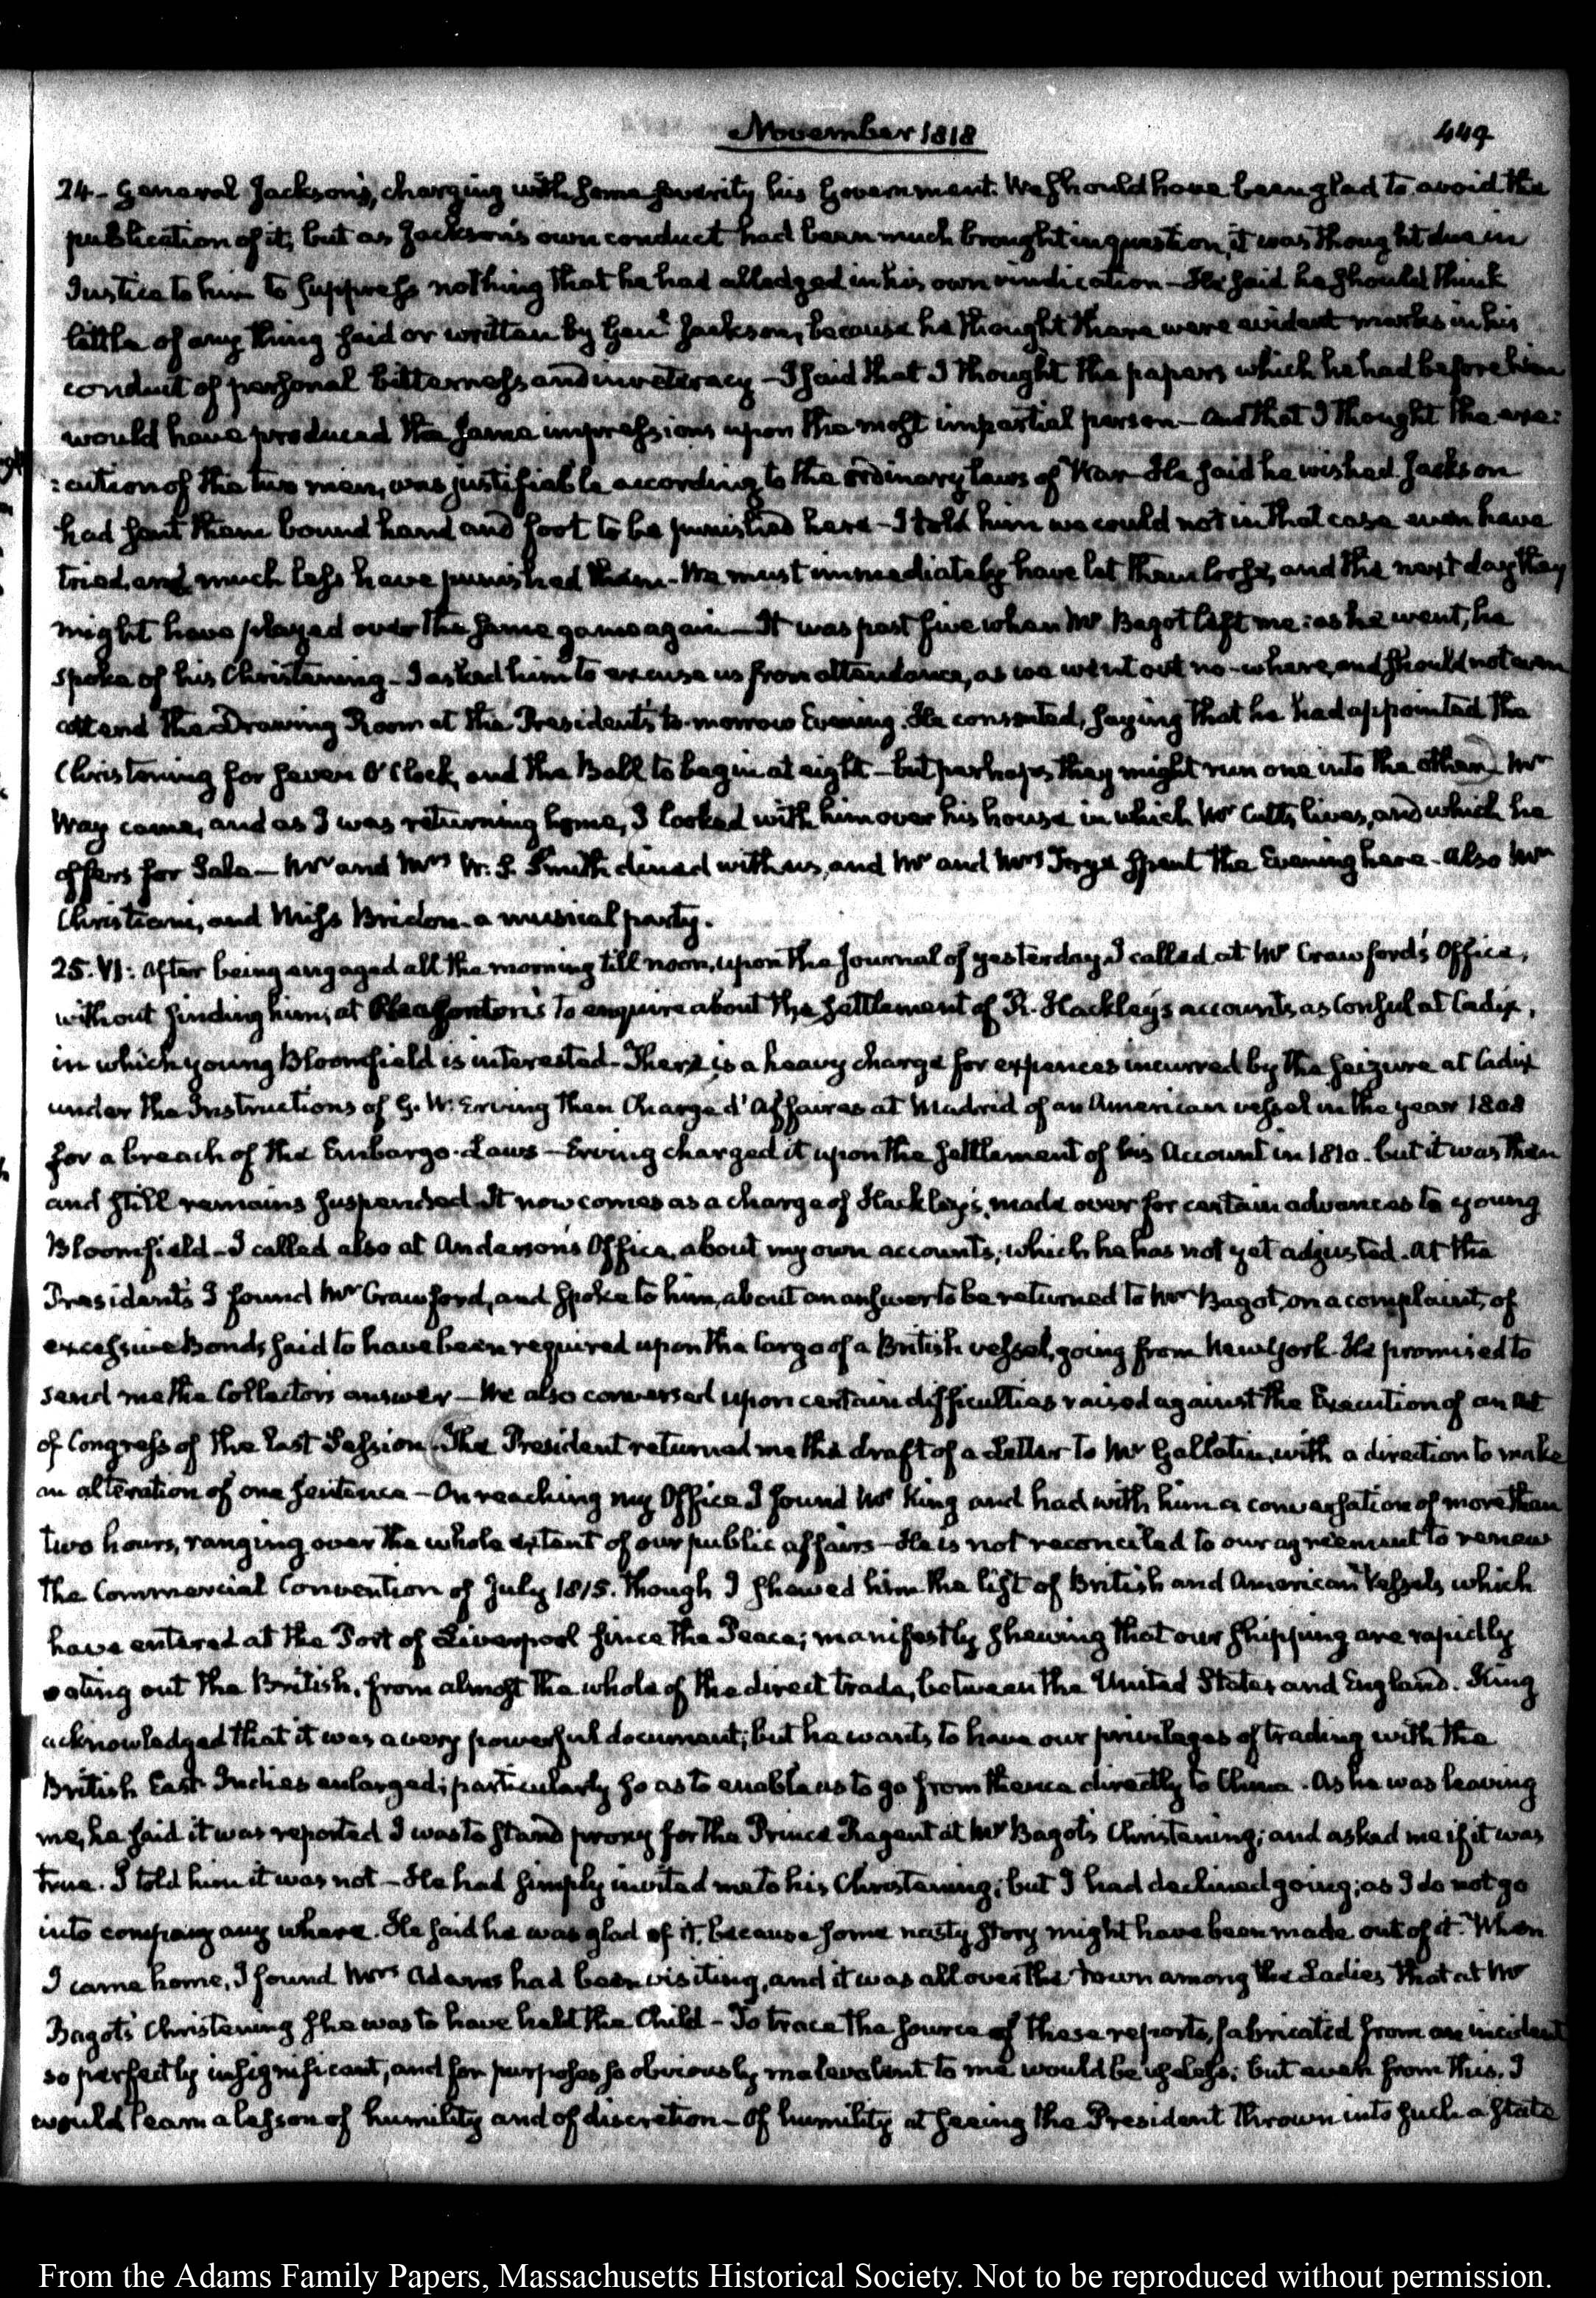 November 1818
449
24- General Jackson's, charging with some severity his Government. We should have been glad to avoid the
publication of it; but as Jackson's own conduct had been much brought in question, it was thought due in
Justice to him to suppress nothing that he had alledged in his own vindication — He said he should think
little of any thing said or written by Genl. Jackson, because he thought there were evident marks in his
conduct of personal bitterness and inveteracy — I said that I thought the papers which he had before him
would have produced the same impressions upon the most impartial person — and that I thought the exe:
:cution of the two men, was justifiable according to the ordinary laws of War — He said he wished Jackson
had sent them bound hand and foot to be punished here — I told him we could not in that case even have
tried, and much less have punished them — We must immediately have let them loose, and the next day they
might have played over the same game again — It was past five when Mr Bagot left me: as he went, he
spoke of his Christening — I asked him to excuse us from attendance, as we went out no-where, and should not even
attend the Drawing Room at the President's to-morrow Evening. He consented, saying that he had appointed the
Christening for seven O'Clock, and the Ball to begin at eight — but perhaps they might run one into the other — Mr
Way came, and as I was returning home, I looked with him over his house in which Mr Cutts lives, and which he
offers for Sale — Mr and Mrs W. S. Smith dined with us, and Mr and Mrs Frye spent the Evening here — Also Mr
Christiani, and Miss Bridon — a musical party.
25. VI: After being engaged all the morning till noon, upon the Journal of yesterday, I called at Mr Crawford's Office,
without finding him; at Pleasonton's to enquire about the settlement of R. Hackley's accounts as Consul at Cadix,
in which young Bloomfield is interested — There is a heavy charge for expences incurred by the seizure at Cadix
under the Instructions of G. W. Erving then Charge d'Affaires at Madrid of an American vessel in the year 1808
for a breach of the Embargo-Laws — Erving charged it upon the settlement of his Account in 1810. but it was then
and still remains suspended. It now comes as a charge of Hackley's, made over for certain advances to young
Bloomfield — I called also at Anderson's Office, about my own accounts, which he has not yet adjusted. At the
President's I found Mr Crawford, and spoke to him, about an answer to be returned to Mr Bagot, on a complaint, of
excessive Bonds said to have been required upon the Cargo of a British vessel, going from New York — He promised to
send me the Collector's answer — We also conversed upon certain difficulties raised against the Execution of an Act
of Congress of the last Session. The President returned me the draft of a Letter to Mr Gallatin, with a direction to make
an alteration of one sentence — On reaching my Office I found Mr King and had with him a conversation of more than
two hours, ranging over the whole extent of our public affairs — He is not reconciled to our agreement to renew
the Commercial Convention of July 1815. though I shewed him the list of British and American Vessels which
have entered at the Port of Liverpool since the Peace; manifestly shewing that our shipping are rapidly
eating out the British, from almost the whole of the direct trade, between the United States and England. King
acknowledged that it was a very powerful document; but he wants to have our privileges of trading with the
British East-Indies enlarged; particularly so as to enable us to go from thence directly to China. As he was leaving
me, he said it was reported I was to stand proxy for the Prince Regent at Mr Bagot's Christening; and asked me if it was
true. I told him it was not — He had simply invited me to his Christening; but I had declined going; as I do not go
into company any where. He said he was glad of it, because some nasty story might have been made out of it. When
I came home, I found Mrs Adams had been visiting, and it was all over the town among the Ladies that at Mr
Bagot's Christening she was to have held the Child — To trace the source of these reports, fabricated from an incident
so perfectly insignificant, and for purposes so obviously malevolent to me would be useless; but even from this, I
would learn a lesson of humility and of discretion — Of humility at seeing the President thrown into such a state
From the Adams Family Papers, Massachusetts Historical Society. Not to be reproduced without permission.